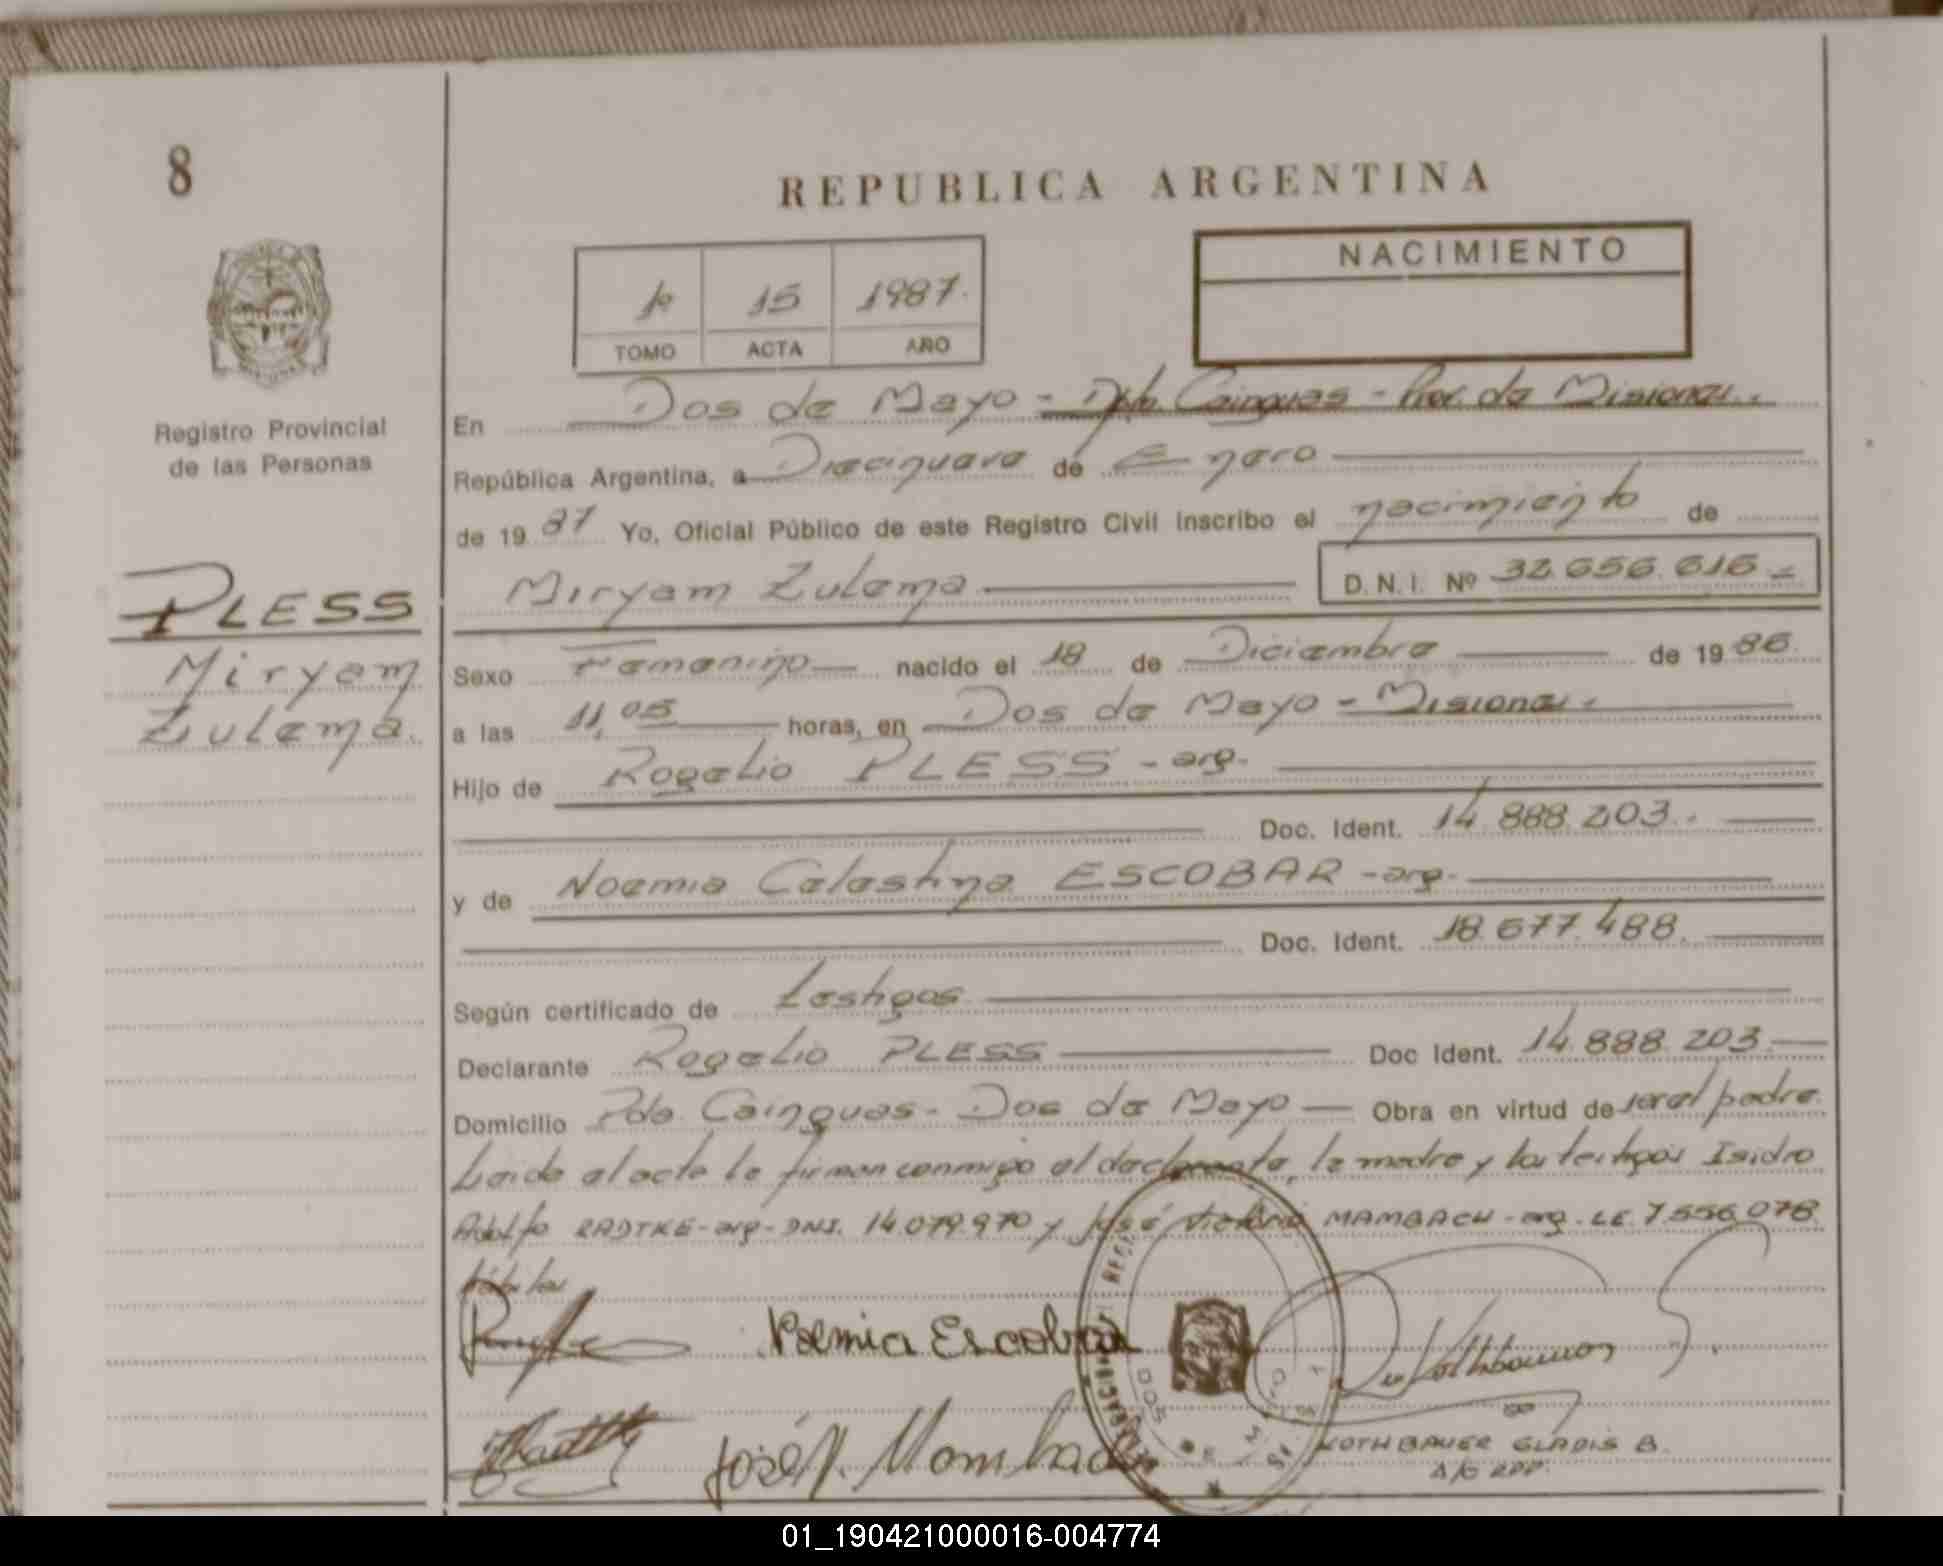 8
REPUBLICA ARGENTINA
NACIMIENTO
1º 15 1987.
TOMO ACTA AÑO
Registro Provincial
de las Personas
PLESS
Miryam
Zulema.
En Dos de Mayo - Dpto. Cainguas - Prov. de Misiones.
República Argentina, a Diecinueve de Enero
de 19 87 Yo, Oficial Público de este Registro Civil inscribo el nacimiento de
Miryam Zulema D.N.I. Nº 32.656.616.-
Sexo Femenino nacido el 18 de Diciembre de 19 86.
a las 11,05 horas, en Dos de Mayo - Misiones.
Hijo de Rogelio PLESS - arg.
Doc. Ident. 14.888.203.
y de Noemia Celestina ESCOBAR - arg.
Doc. Ident. 18.677.488.
Según certificado de Testigos
Declarante Rogelio PLESS Doc Ident. 14.888.203.
Domicilio Pdo. Cainguas - Dos de Mayo Obra en virtud de ser el padre.
Leida el acta la firman conmigo el declarante, la madre y los testigos Isidro
Adolfo RADTKE - arg - DNI. 14.079.970 y José Victorio MAMBACH - arg - LE. 7.556.078
Noemia Escobar
José V. Mombach
DOS DE MAYO
KOTHBAUER GLADIS B.
A/C RPP.
01_190421000016-004774